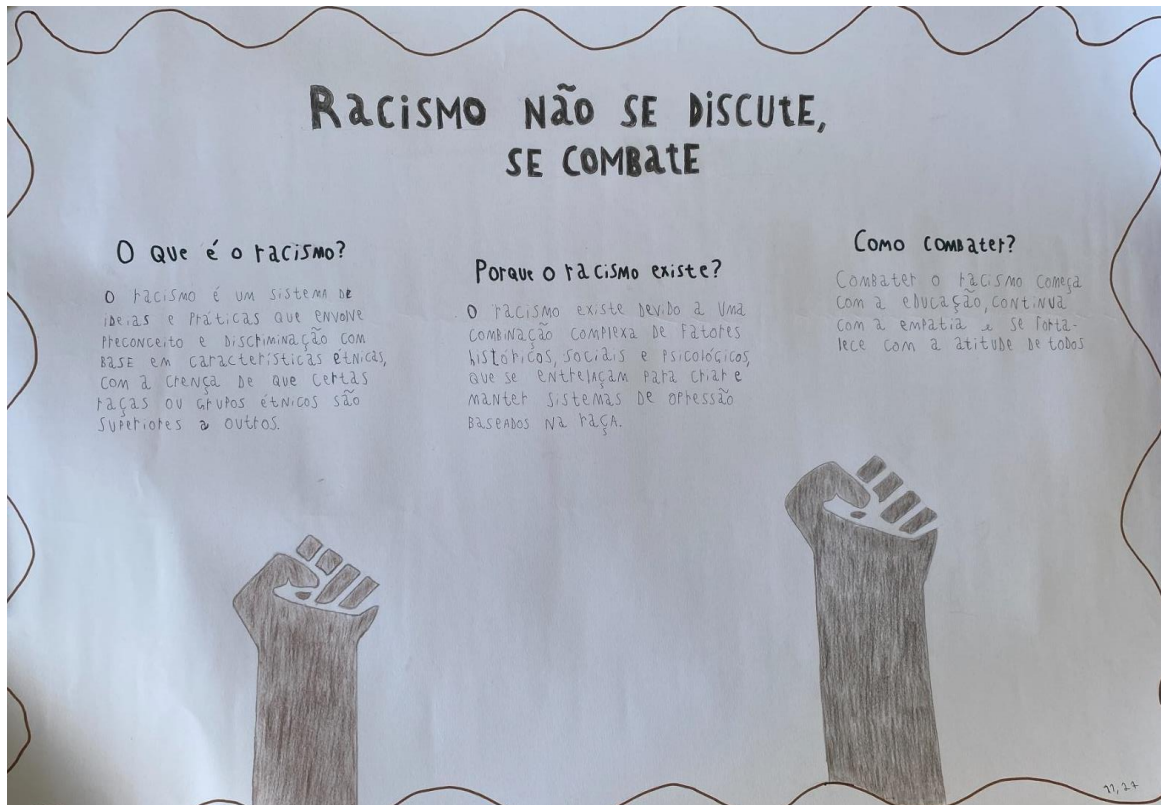 Racismo não se discute,
se combate
O que é o racismo?
O racismo é um sistema de
ideias e práticas que envolve
preconceito e discriminação com
base em características étnicas,
com a crença de que certas
raças ou grupos étnicos são
superiores a outros.
Porque o racismo existe?
O racismo existe devido a uma
combinação complexa de fatores
históricos, sociais e psicológicos,
que se entrelaçam para criar e
manter sistemas de opressão
baseados na raça.
Como combater?
Combater o racismo começa
com a educação, continua
com a empatia e se forta-
lece com a atitude de todos